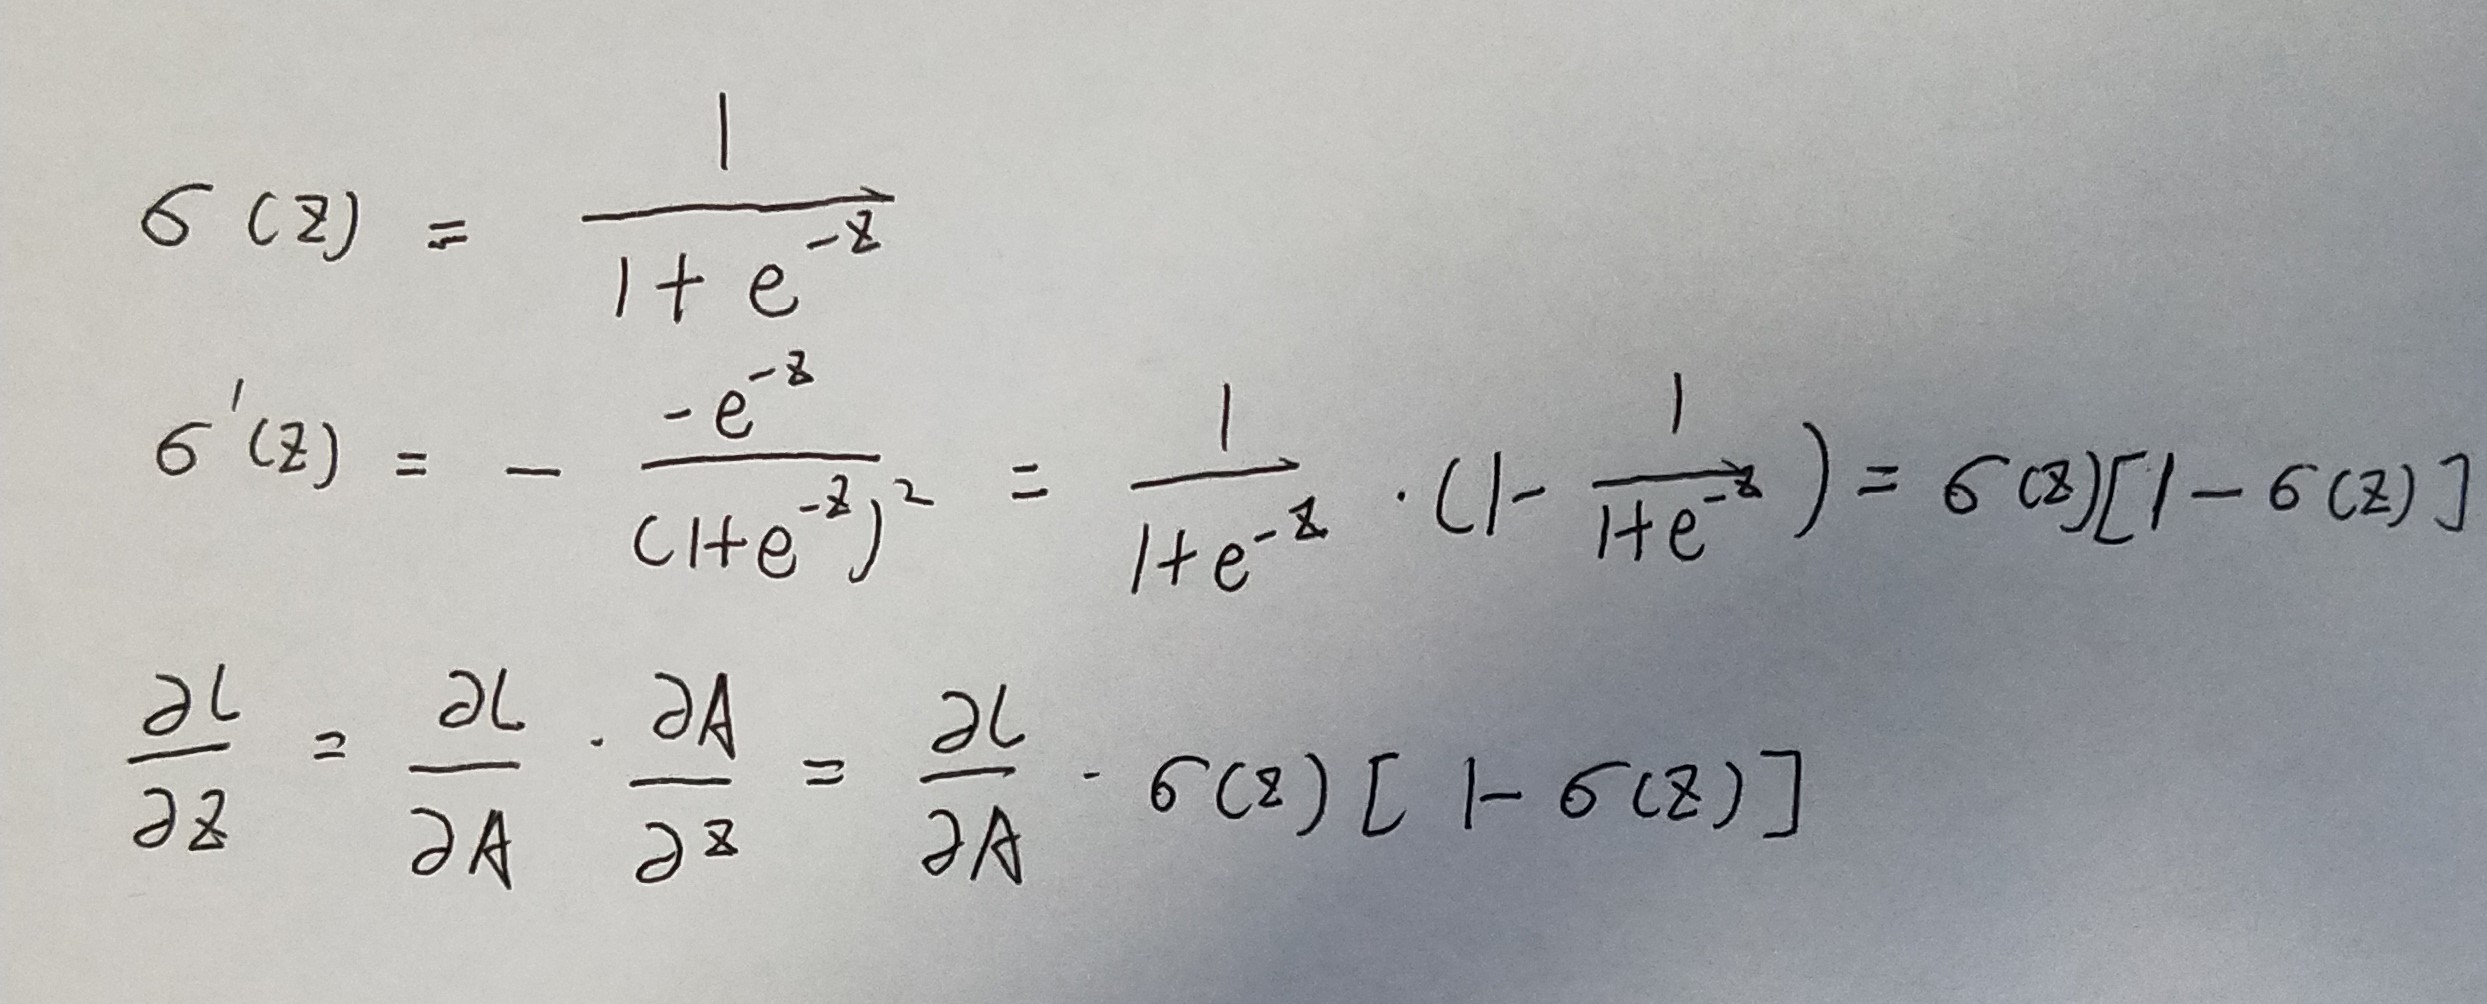 σ(z) = 1/(1+e^{-z})
σ'(z) = - (-e^{-z})/((1+e^{-z})^2) = 1/(1+e^{-z}) · (1 - 1/(1+e^{-z})) = σ(z)[1-σ(z)]
∂L/∂z = ∂L/∂A · ∂A/∂z = ∂L/∂A · σ(z)[1-σ(z)]